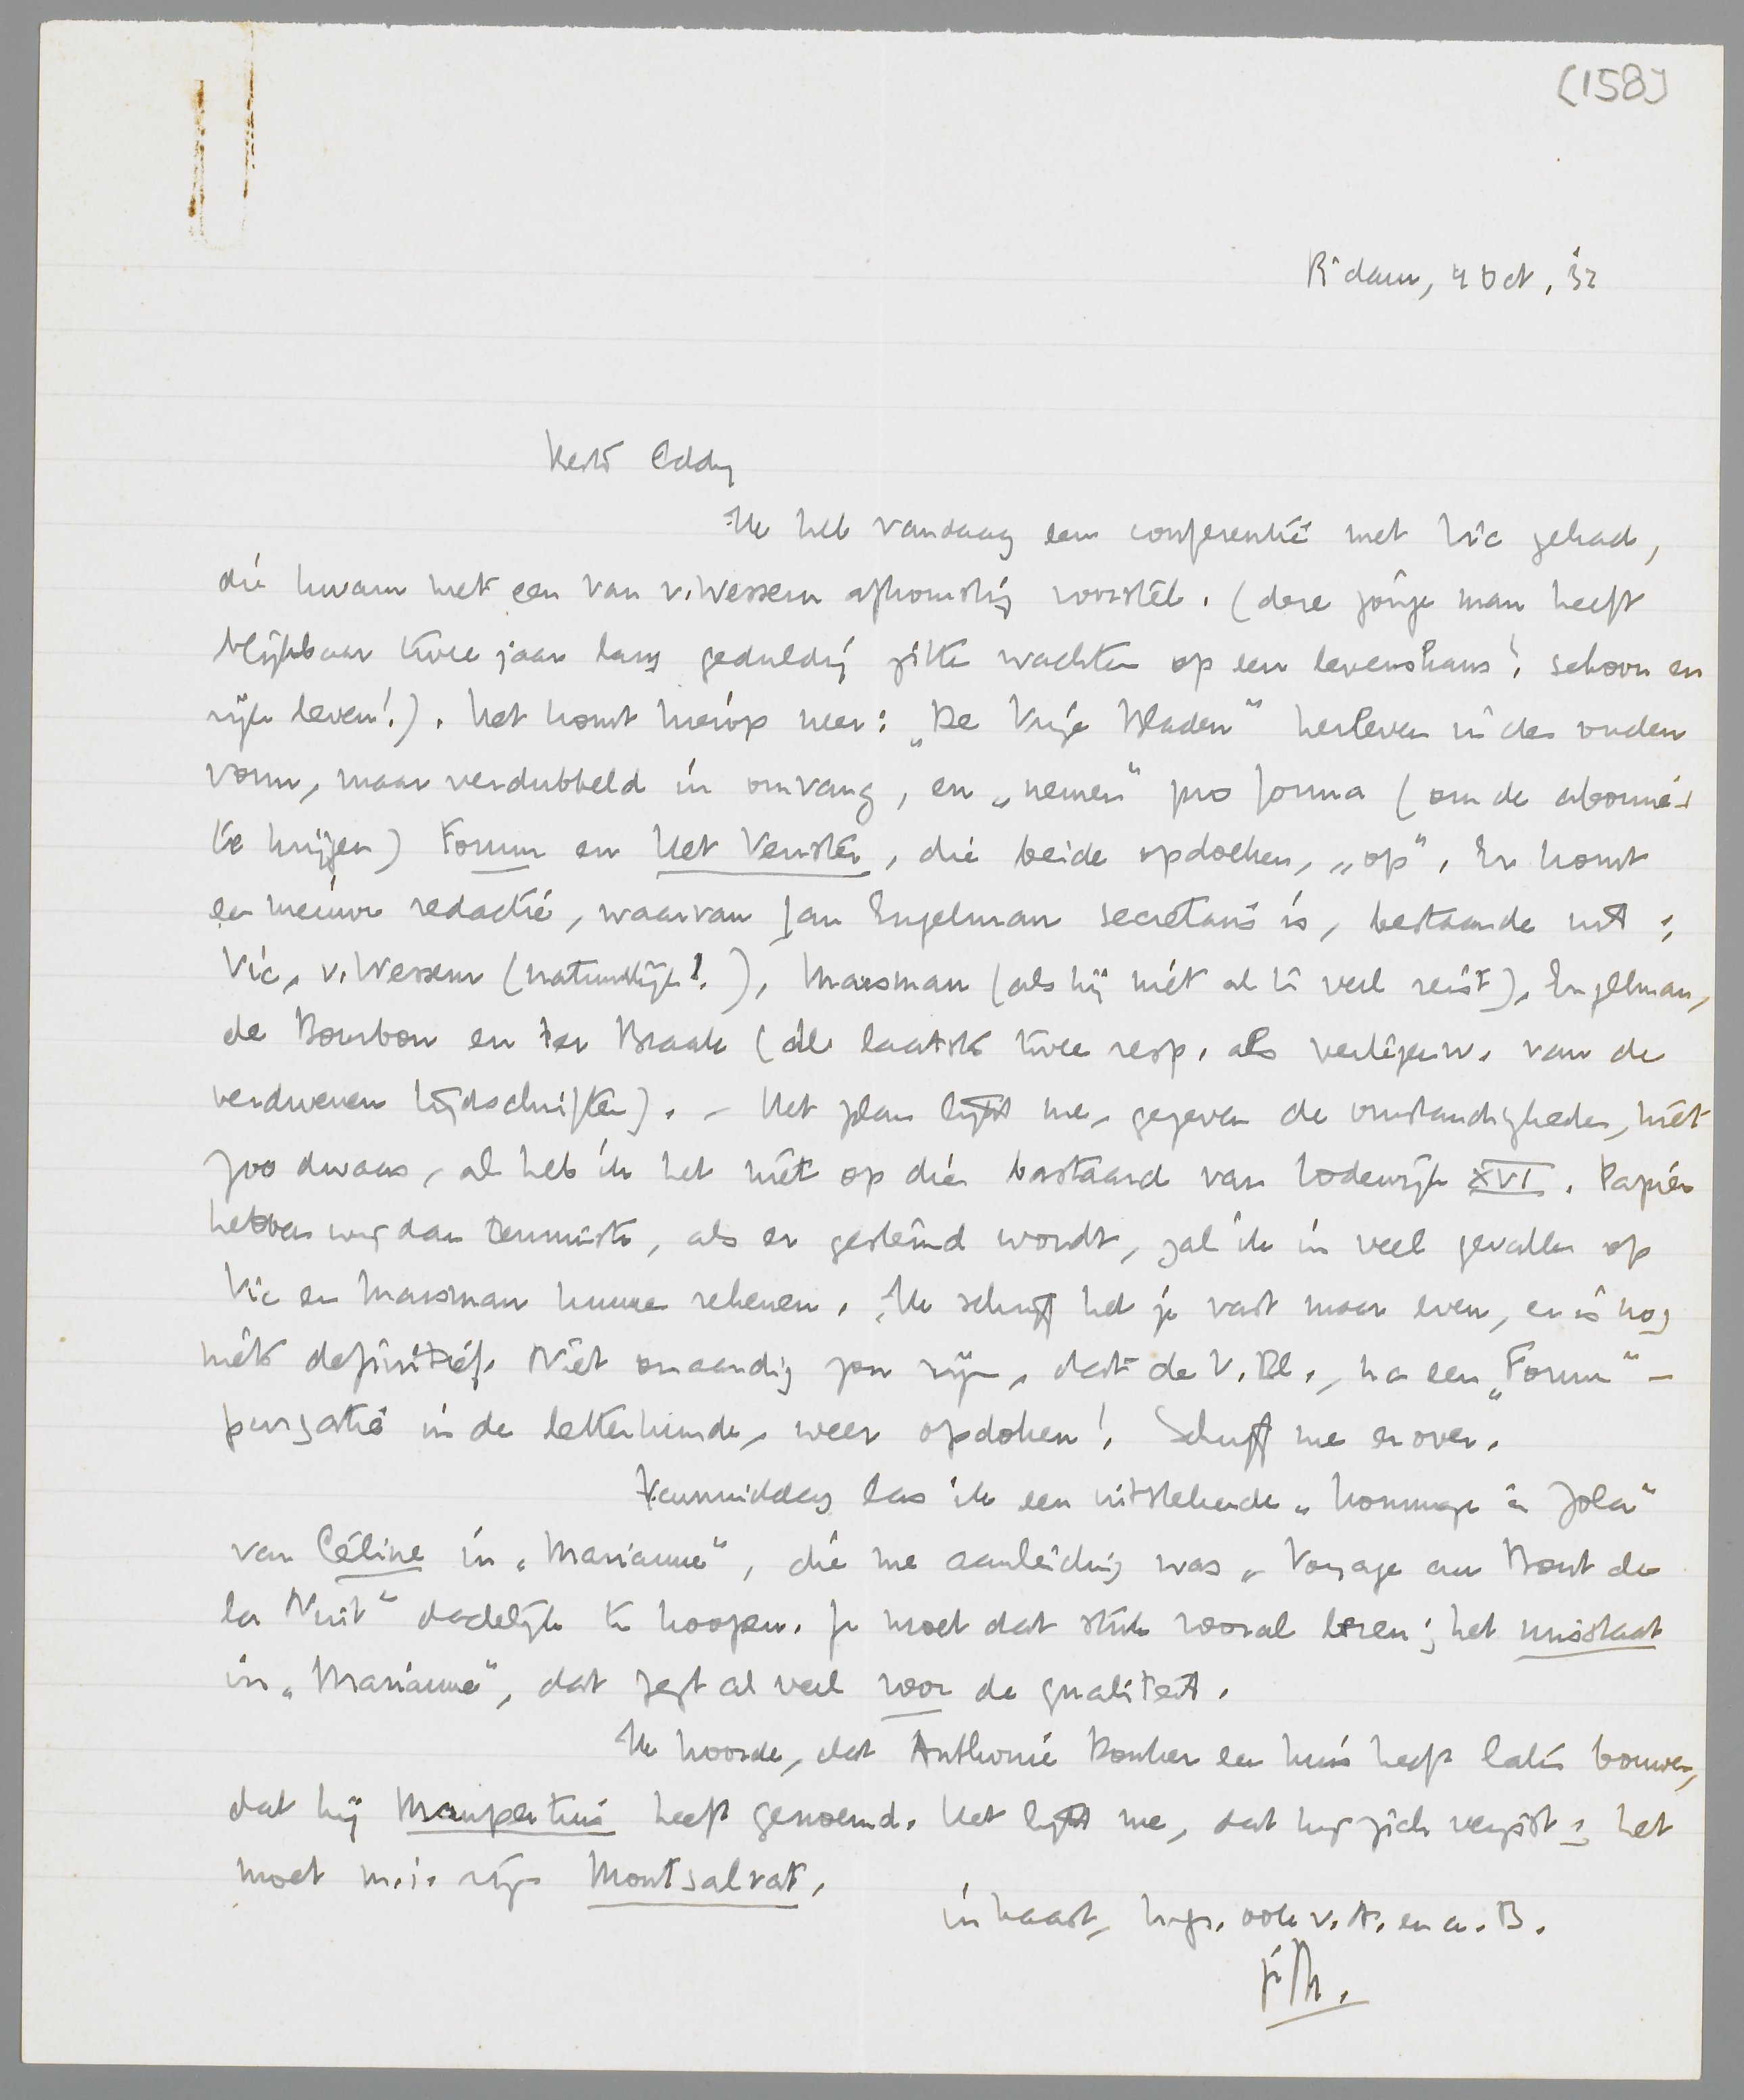 [158]
R'dam, 4 Oct. '32
Beste Eddy
Ik heb vandaag een conferentie met Vic gehad,
die kwam met een van v. Wessem afkomstig voorstel. (deze jonge man heeft
blijkbaar twee jaar lang geduldig zitten wachten op een levenskans! schoon en
rijk leven!). Het komt hierop neer: „De Vrije Bladen" herleven in den ouden
vorm, maar verdubbeld in omvang, en „nemen" pro forma (om de abonné's
te krijgen) Forum en Het Venster, die beide opdoeken, „op". Er komt
een nieuwe redactie, waarvan Jan Engelman secretaris is, bestaande uit:
Vic, v. Wessem (natuurlijk!), Marsman (als hij niet al te veel reist), Engelman,
de Bourbon en ter Braak (de laatste twee resp. als vertegenw. van de
verdwenen tijdschriften). – Het plan lijkt me, gegeven de omstandigheden, niet
zoo dwaas, al heb ik het niet op dien bastaard van Lodewijk XVI. Papier
hebben wij dan tenminste, als er gestemd wordt, zal ik in veel gevallen op
Vic en Marsman kunnen rekenen. Ik schrijf het je vast maar even, er is nog
niets definitief. Niet onaardig zou zijn, dat de V. Bl., na een „Forum"-
purgatie in de letterkunde, weer opdoken! Schrijf me erover.
Vanmiddag las ik een uitstekende „Hommage à Zola"
van Céline in „Marianne", die me aanleiding was „Voyage au Bout de
la Nuit" dadelijk te koopen. Je moet dat stuk vooral lezen; het misstaat
in „Marianne", dat zegt al veel voor de qualiteit.
Ik hoorde, dat Anthonie Donker een huis heeft laten bouwen,
dat hij Maupertuis heeft genoemd. Het lijkt me, dat hij zich vergist; het
moet m.i. zijn Montsalvat.
in haast, hrtgr. ook v. A. en a. B.
je M.